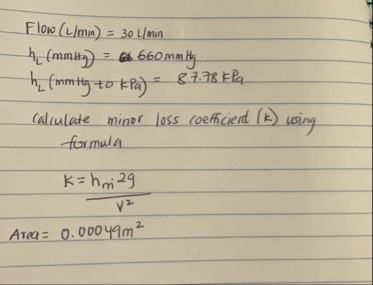 Flow (L/min) = 30 L/min
hL (mmHg) = 660 mmHg
hL (mmHg to kPa) = 87.78 kPa
Calculate minor loss coefficient (k) using
formula
K = hm 2g
V²
Area = 0.00049m²